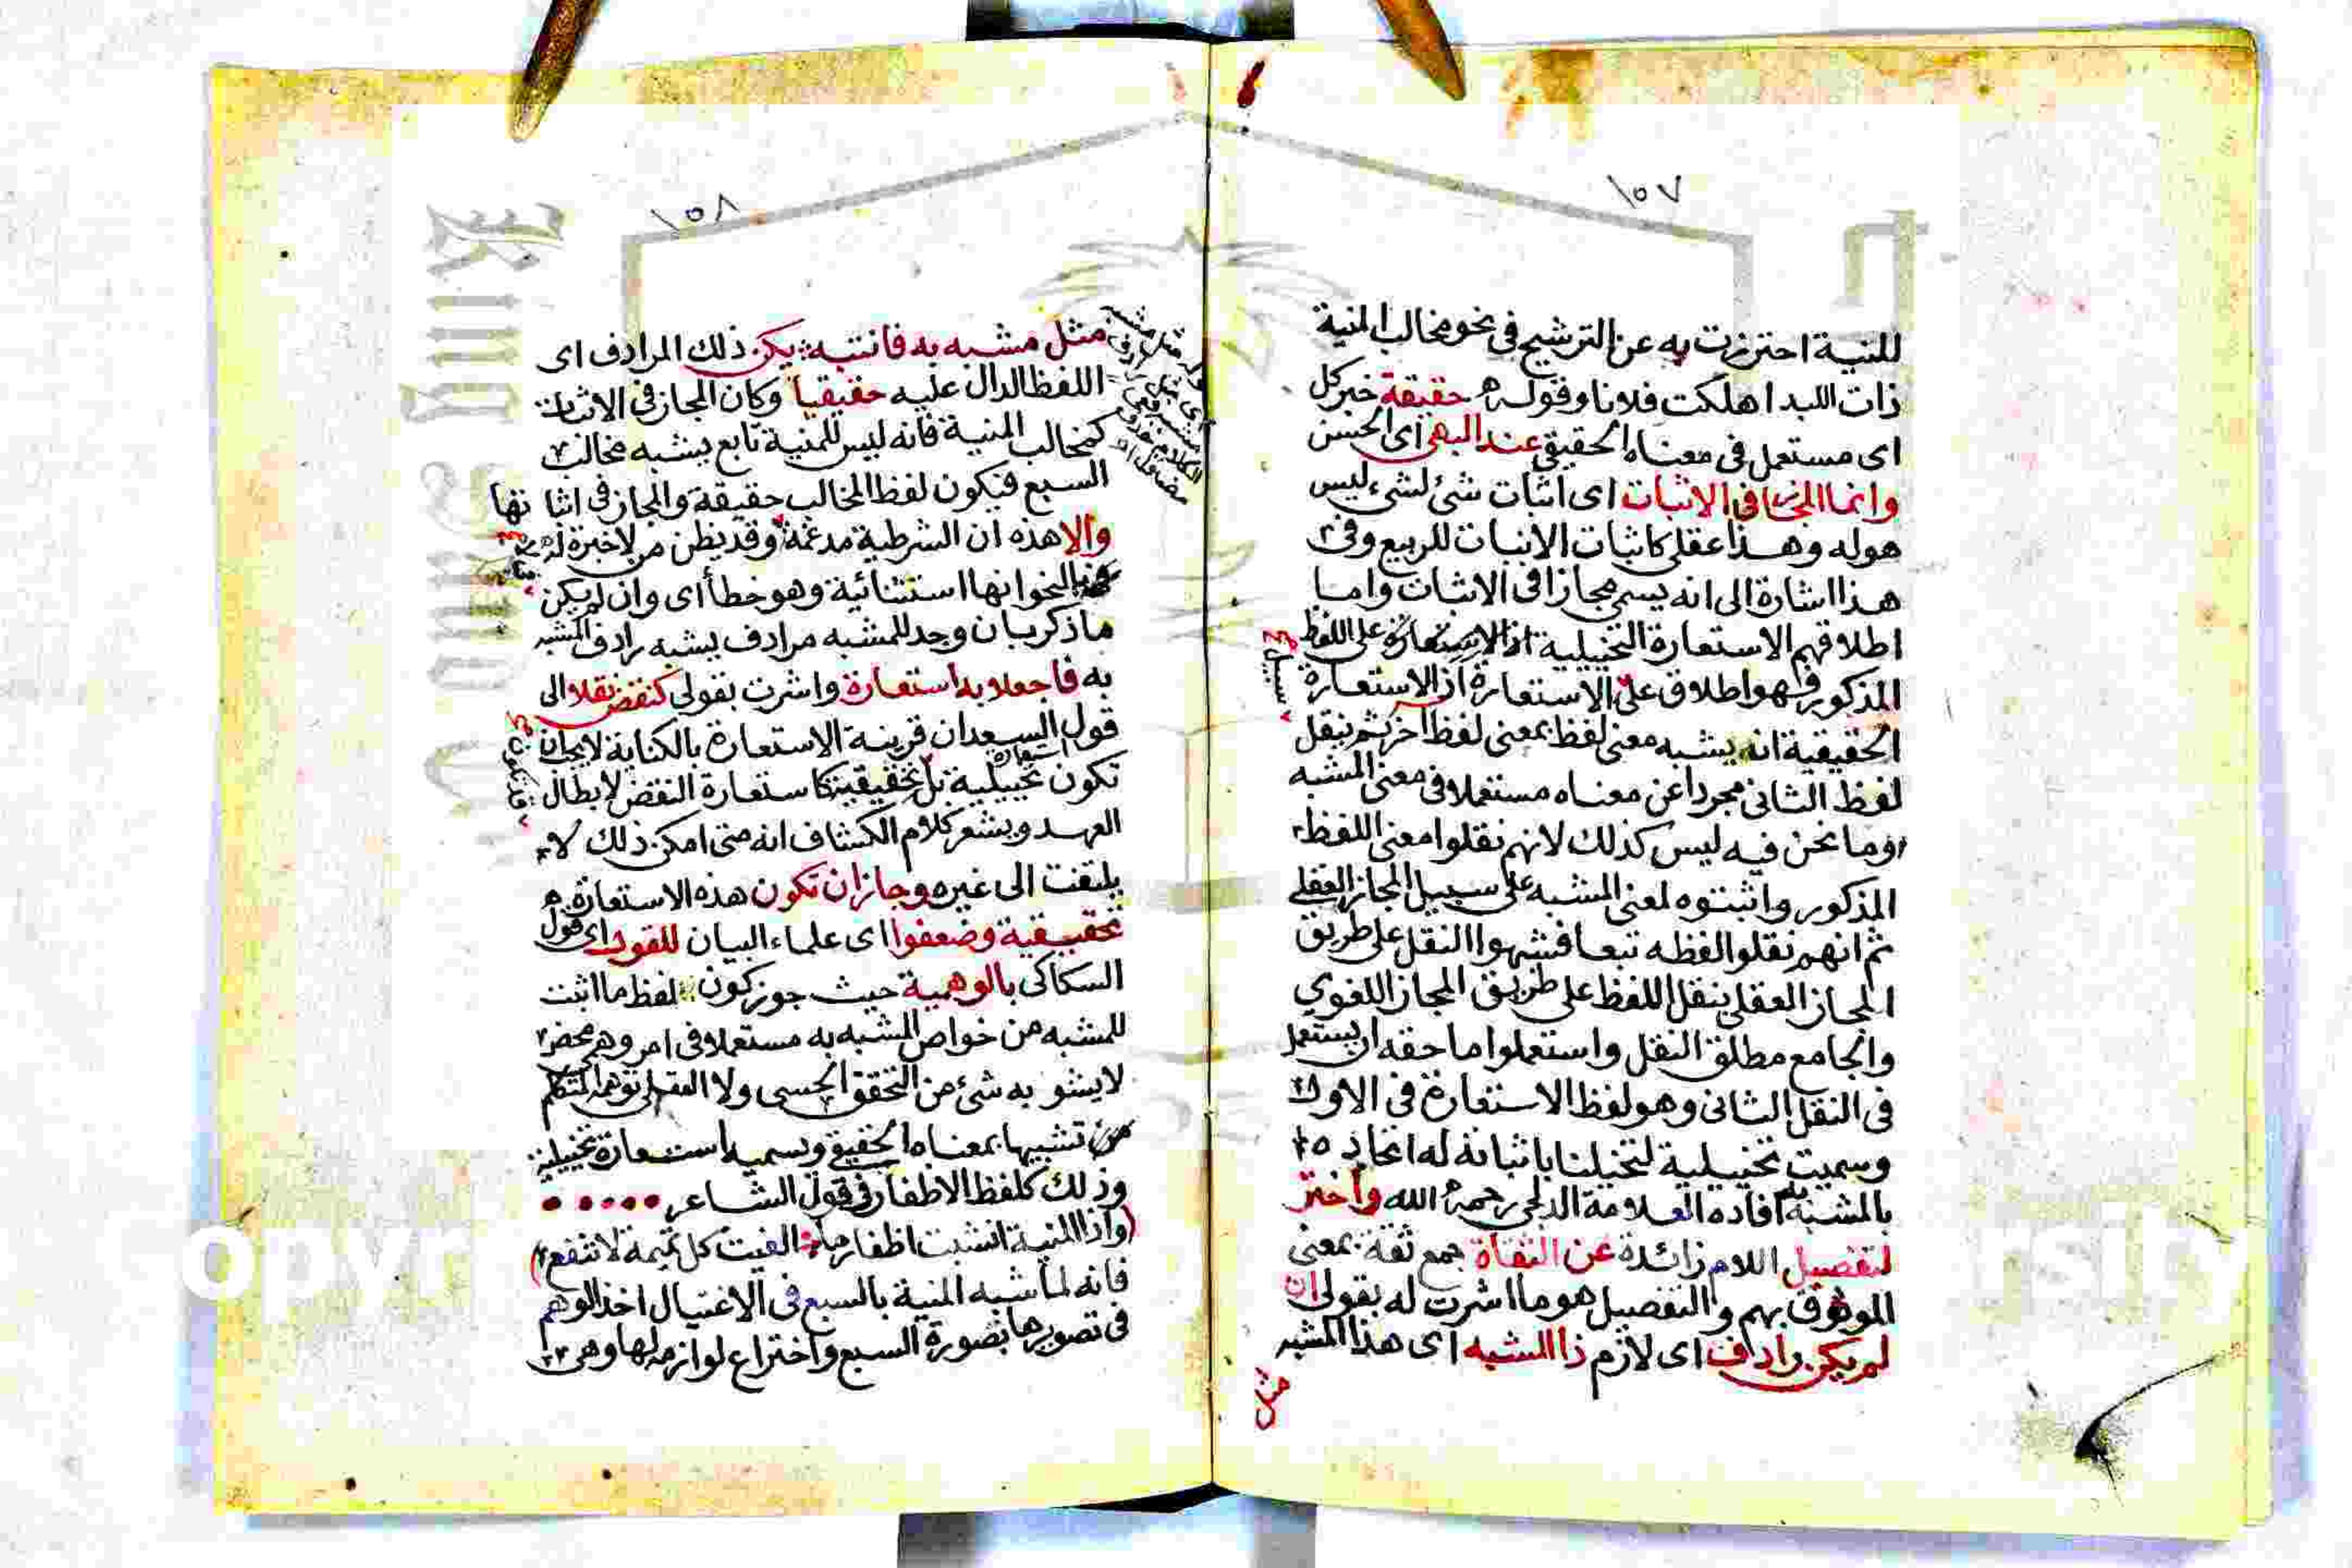 ١٥٧
للمنية احترزت به عن الترشيح في نحو مخالب المنية
ذات اللبد اهلكت فلانا وقوله حقيقة خبر كل
اى مستعمل فى معناه الحقيقي عند البهى اى الحسن
وانما المجاز فى الاثبات اى اثبات شئ لشئ ليس
هوله وهذا عقلى كاثبات الانبات للربيع وفى
هذا اشارة الى انه يسمى مجازا فى الاثبات واما
اطلاقهم الاستعارة التخييلية على اللفظ
المذكور فهو اطلاق على الاستعارة اذ الاستعارة
سبيل
الحقيقية انه يشبه معنى لفظ بمعنى لفظ آخر ثم ينقل
لفظ الثانى مجردا عن معناه مستعملا فى معنى المشبه
وما نحن فيه ليس كذلك لانهم نقلوا معنى اللفظ
المذكور واثبتوه لمعنى المشبه على سبيل المجاز العقلي
ثم انهم نقلوا لفظه تبعا فشبهوا النقل على طريق
المجاز العقلى بنقل اللفظ على طريق المجاز اللغوي
والجامع مطلق النقل واستعملوا ما حقه ان يستعمل
فى النقل الثانى وهو لفظ الاستعارة فى الاول
وسميت تخييلية لتخيلنا باثباته له اتحاده
بالمشبه به افاده العلامة الدلجى رحمه الله واختر
لتفصيل اللام زائدة عن الثقاة جمع ثقة بمعنى
الموثوق بهم والتفصيل هو ما اشرت له بقولى ان
لم يكن رادف اى لازم ذا المشبه اى هذا المشبه
مثل
١٥٨
مثل مشبه به فانتبه يكن ذلك المرادف اى
اللفظ الدال عليه حقيقيا وكان المجاز فى الاثبات
كمخالب المنية فانه ليس للمنية تابع يشبه مخالب
السبع فيكون لفظ المخالب حقيقة والمجاز فى اثباتها
والا هذه ان الشرطية مدغمة وقد يظن من لا خبرة له
النحو انها استثنائية وهو خطأ اى وان لم يكن
ما ذكر بان وجد للمشبه مرادف يشبه رادف المشبه
به فاجعلا به استعارة واشرت بقولى كنقض نقلا الى
قول السعد ان قرينة الاستعارة بالكناية لا يجب ان
تكون استعارة تخييلية بل تحقيقية كاستعارة النقض لابطال
العهد ويشعر كلام الكشاف انه متى امكن ذلك لا
يلتفت الى غيره وجاز ان تكون هذه الاستعارة
تحقيقية وضعفوا اى علماء البيان للقول اى قول
السكاكى بالوهمية حيث جوز كون لفظ ما اثبت
للمشبه من خواص المشبه به مستعملا فى امر وهمى محض
لا يشوبه شئ من التحقق الحسى ولا العقلى توهمه المتكلم
تشبيها بمعناه الحقيقي ويسميه استعارة تخييلية
وذلك كلفظ الاظفار فى قول الشاعر
(واذا المنية انشبت اظفارها الفيت كل تميمة لا تنفع)
فانه لما شبه المنية بالسبع فى الاغتيال اخذ الوهم
فى تصويرها بصورة السبع واختراع لوازمه لها وهى